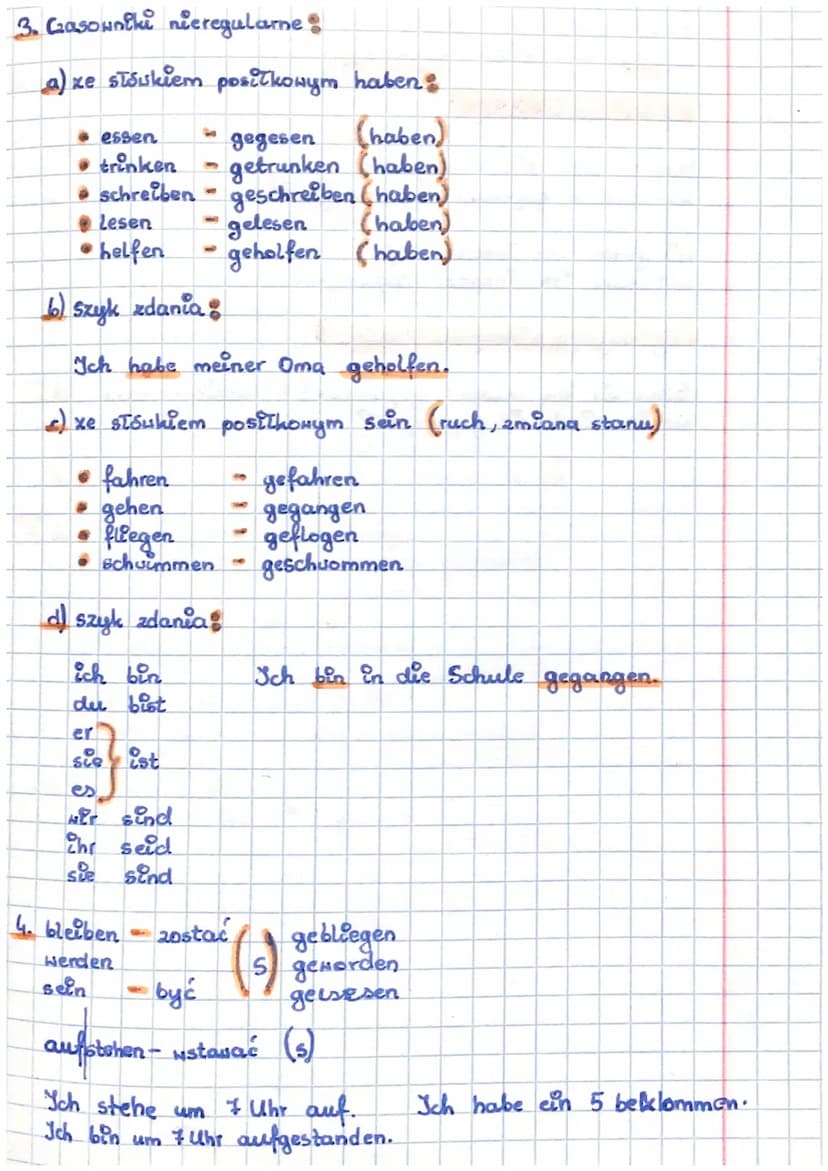 3. Czasowniki nieregularne:
a) ze słówkiem posiłkowym haben:
• essen - gegesen (haben)
• trinken - getrunken (haben)
• schreiben - geschreiben (haben)
• lesen - gelesen (haben)
• helfen - geholfen (haben)
b) szyk zdania:
Ich habe meiner Oma geholfen.
c) ze słówkiem posiłkowym sein (ruch, zmiana stanu)
• fahren - gefahren
• gehen - gegangen
• fliegen - geflogen
• schwimmen - geschwommen
d) szyk zdania:
ich bin Ich bin in die Schule gegangen.
du bist
er
sie } ist
es
wir sind
ihr seid
sie sind
4. bleiben - zostać (s) gebliegen
werden geworden
sein - być gewesen
auf|stehen - wstawać (s)
Ich stehe um 7 Uhr auf. Ich habe ein 5 beklommen.
Ich bin um 7 Uhr aufgestanden.